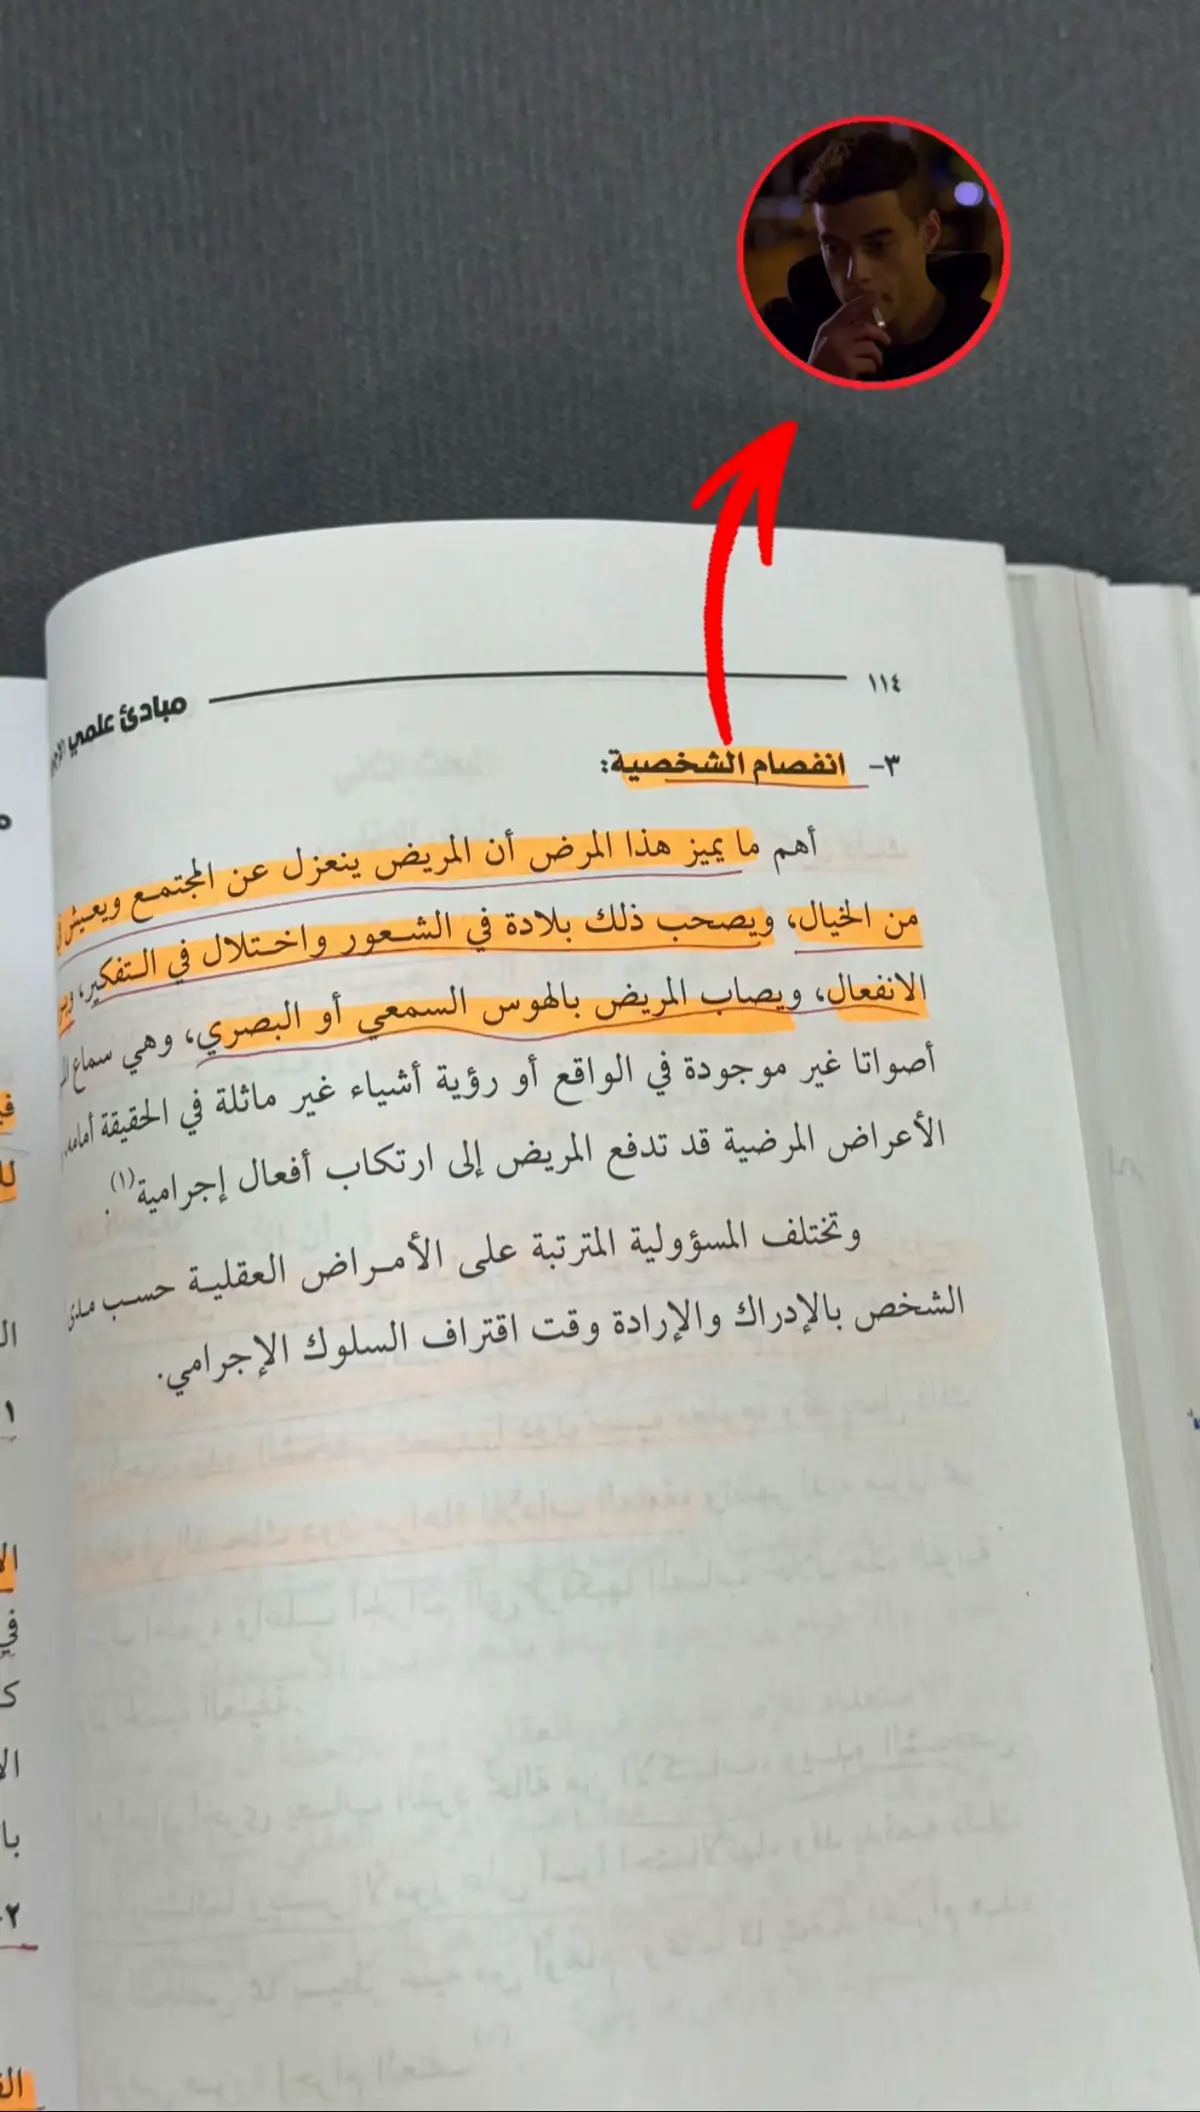 ١١٤
مبادئ علمي
٣- انفصام الشخصية:
أهم ما يميز هذا المرض أن المريض ينعزل عن المجتمع ويعيش
من الخيال، ويصحب ذلك بلادة في الشعور واختلال في التفكير،
الانفعال، ويصاب المريض بالهوس السمعي أو البصري، وهي سماع
أصواتا غير موجودة في الواقع أو رؤية أشياء غير ماثلة في الحقيقة أمامه
الأعراض المرضية قد تدفع المريض إلى ارتكاب أفعال إجرامية(١).
وتختلف المسؤولية المترتبة على الأمراض العقلية حسب مدى
الشخص بالإدراك والإرادة وقت اقتراف السلوك الإجرامي.